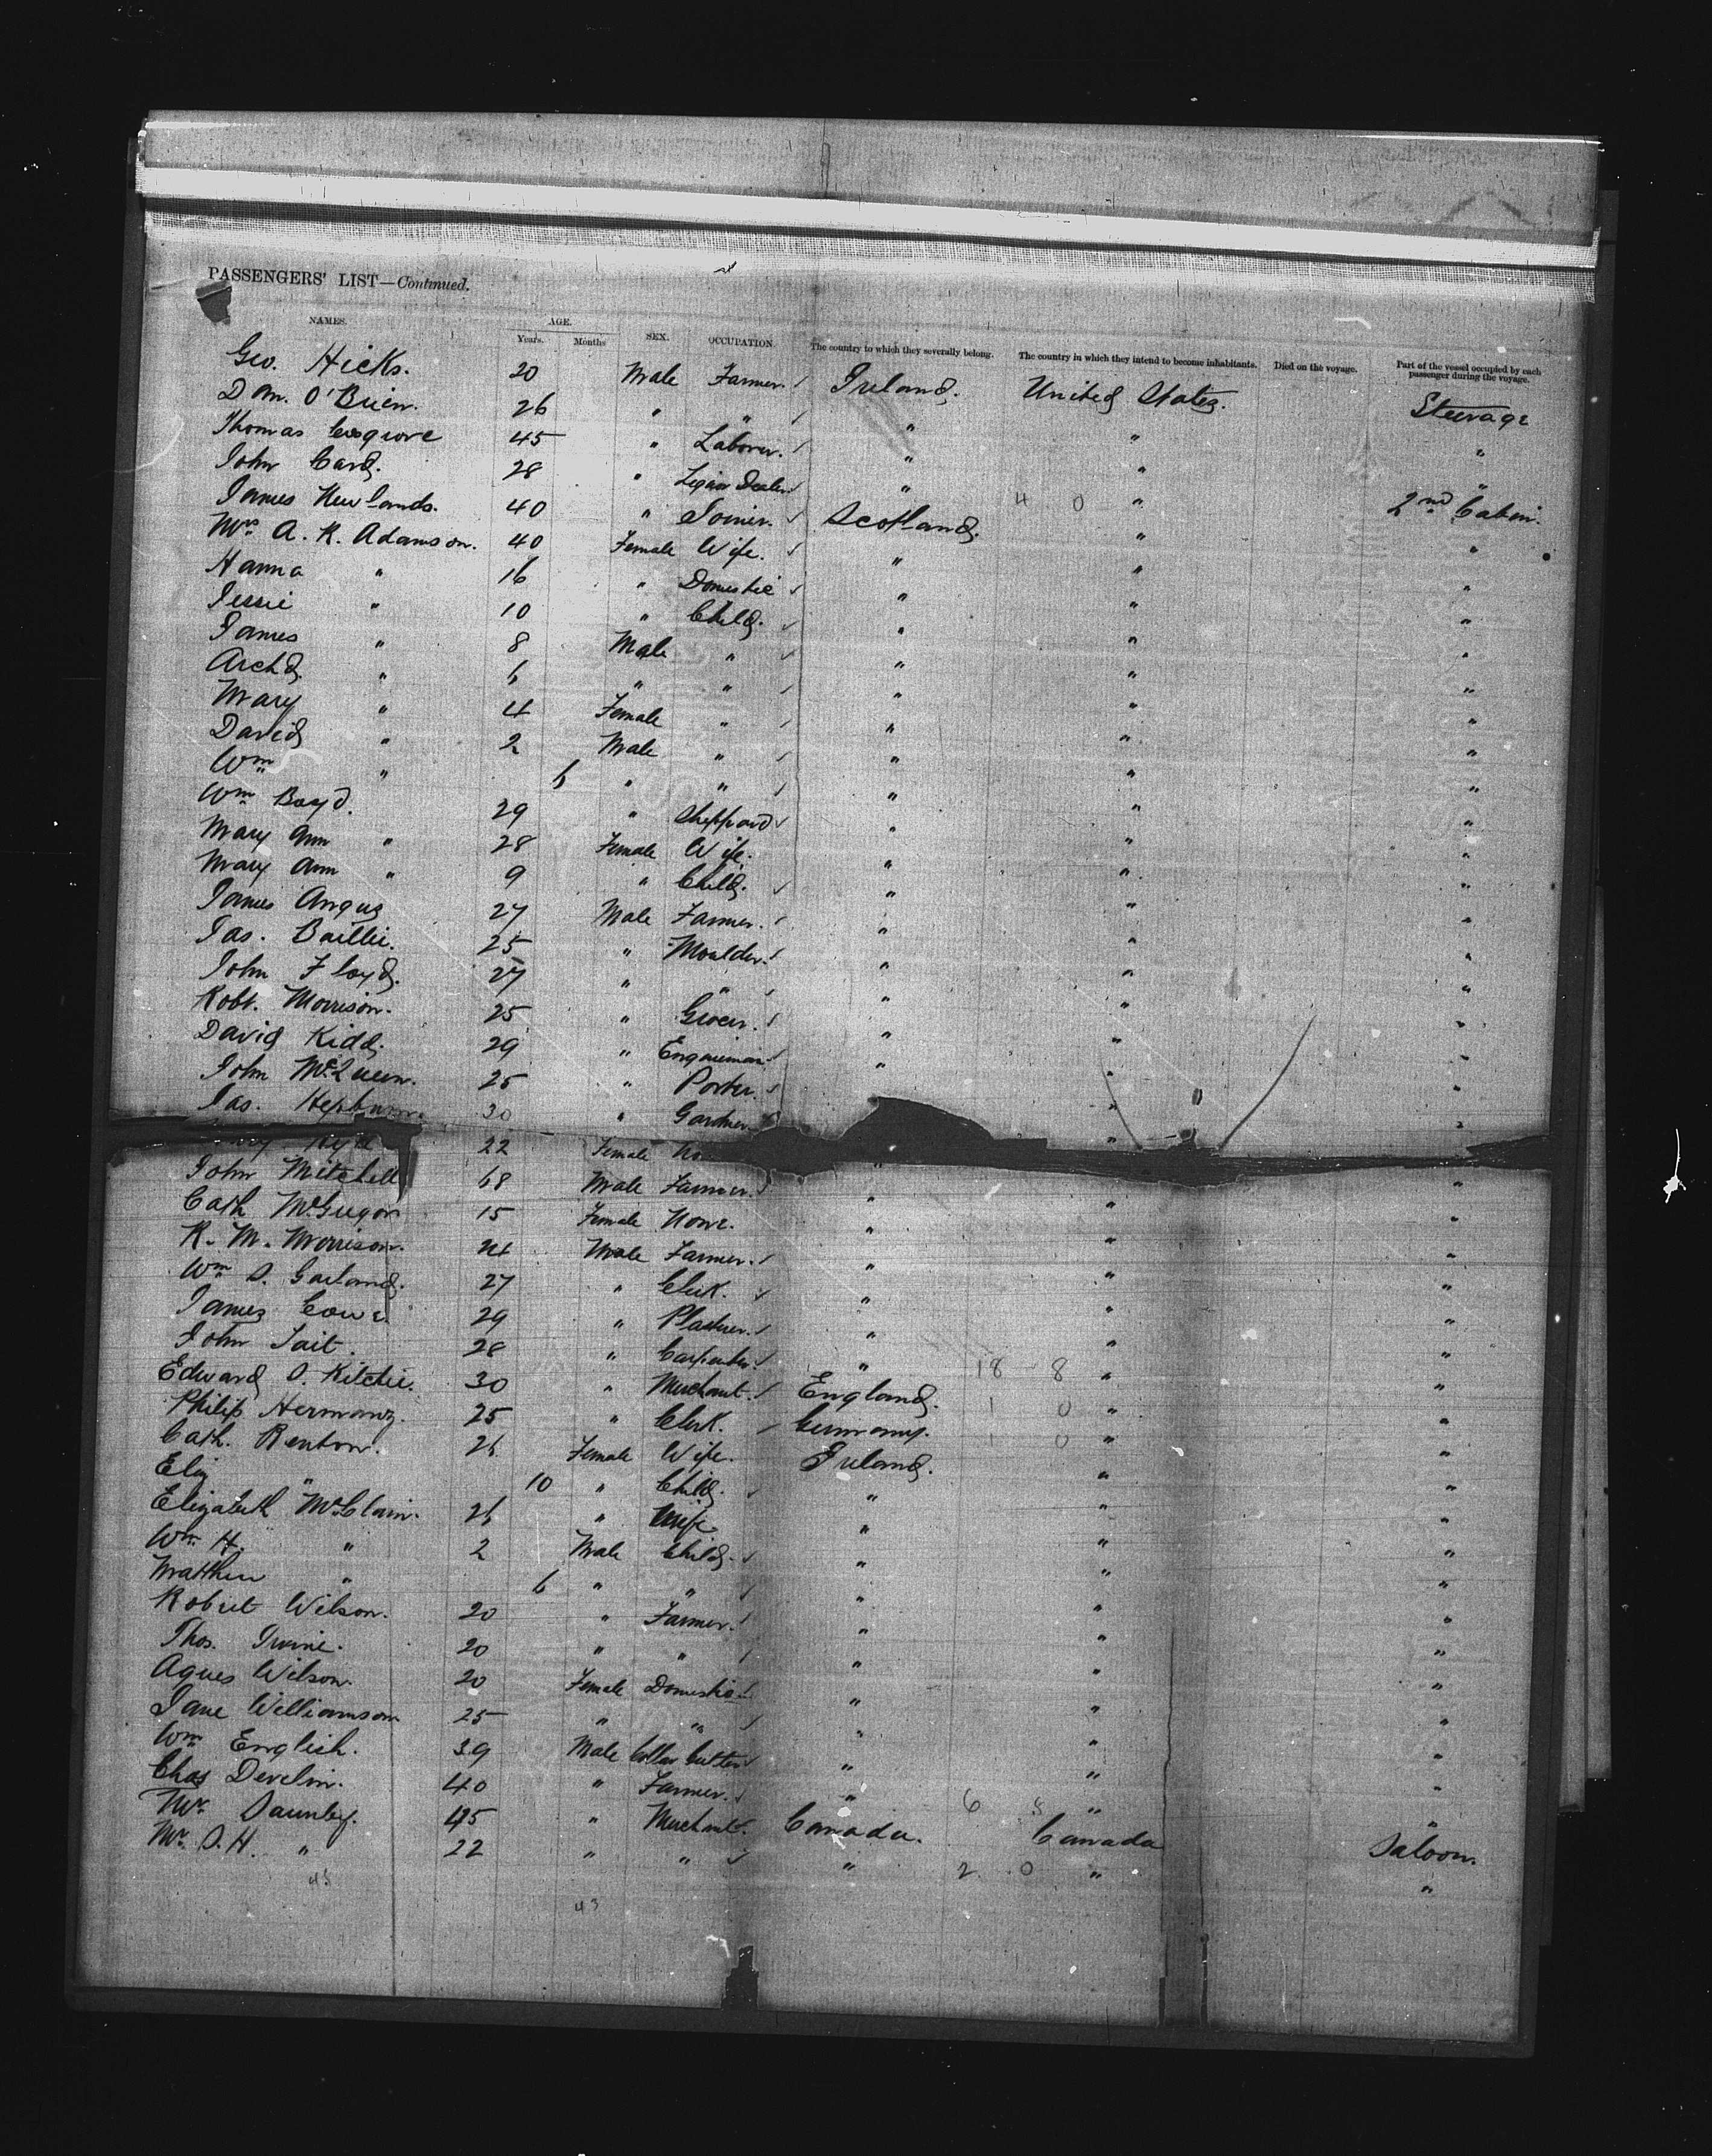 PASSENGERS' LIST—Continued.
NAMES. AGE. Years. Months SEX. OCCUPATION. The country to which they severally belong. The country in which they intend to become inhabitants. Died on the voyage. Part of the vessel occupied by each passenger during the voyage.
Geo. Hicks. 20 Male Farmer. Ireland. United States. Steerage
Dan. O'Brien. 26 " " " " "
Thomas Cosgrove 45 " Laborer. " " "
John Card. 28 " Dealer " 4 0 " 2nd Cabin.
James Newlands. 40 " Joiner. Scotland. " "
Mrs A. K. Adamson. 40 Female Wife. " " "
Hanna " 16 " Domestic " " "
Jessie " 10 " Child. " " "
James " 8 Male " " " "
Archd. " 6 " " " " "
Mary " 4 Female " " " "
David " 2 Male " " " "
Wm " 6 " " " " "
Wm Boyd. 29 " Sheppard " " "
Mary Ann " 28 Female Wife. " " "
Mary Ann " 9 " Child. " " "
James Angus 27 Male Farmer. " " "
Jas. Baillie. 25 " Moulder. " " "
John Floyd. 27 " " " " "
Robt. Morrison. 25 " Grocer. " " "
David Kidd. 29 " Engineman. " " "
John McQueen. 25 " Porter. " " "
Jas. Hepburn. 30 " Gardner. " "
22 Female "
John Mitchell 68 Male Farmer. " " "
Cath McGregor 15 Female None. " " "
K. M. Morrison. 24 Male Farmer. " " "
Wm S. Garland. 27 " Clerk. " " "
James Cowe. 29 " Plasterer. " " "
John Tait. 28 " Carpenter. " 18 8 " "
Edward S. Ritchie. 30 " Merchant. England. 1 0 " "
Philip Hermany. 25 " Clerk. Germany. 1 0 " "
Cath. Renton. 26 Female Wife. Ireland. " "
Eliz " 10 " Child. " " "
Elizabeth McClain. 26 " Wife " " "
Wm H. " 2 Male Child. " " "
Matthew " 6 " " " " "
Robert Wilson. 20 " Farmer. " " "
Thos. Irvine. 20 " " " " "
Agnes Wilson. 20 Female Domestic. " " "
Jane Williamson 25 " " " " "
Wm English. 39 Male Collar Cutter " " "
Chas Devlin. 40 " Farmer. " 6 8 " "
Mr. Saunby. 45 " Merchant. Canada. Canada Saloon.
Mr. S. H. " 22 " " " 2 0 " "
43 43